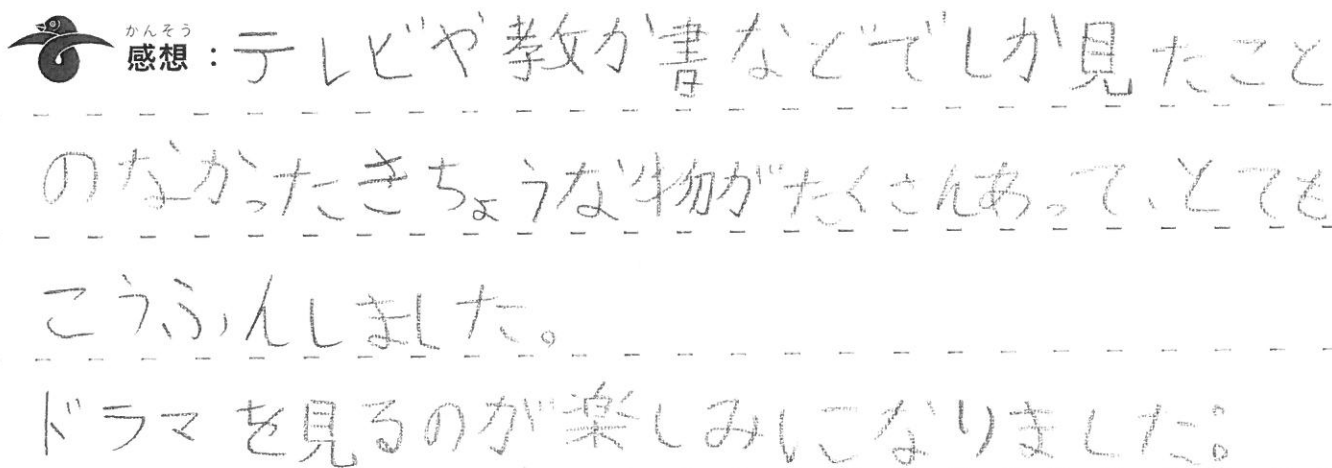 かんそう
感想：テレビや教か書などでしか見たこと
のなかったきちょうな物がたくさんあって、とても
こうふんしました。
ドラマを見るのが楽しみになりました。